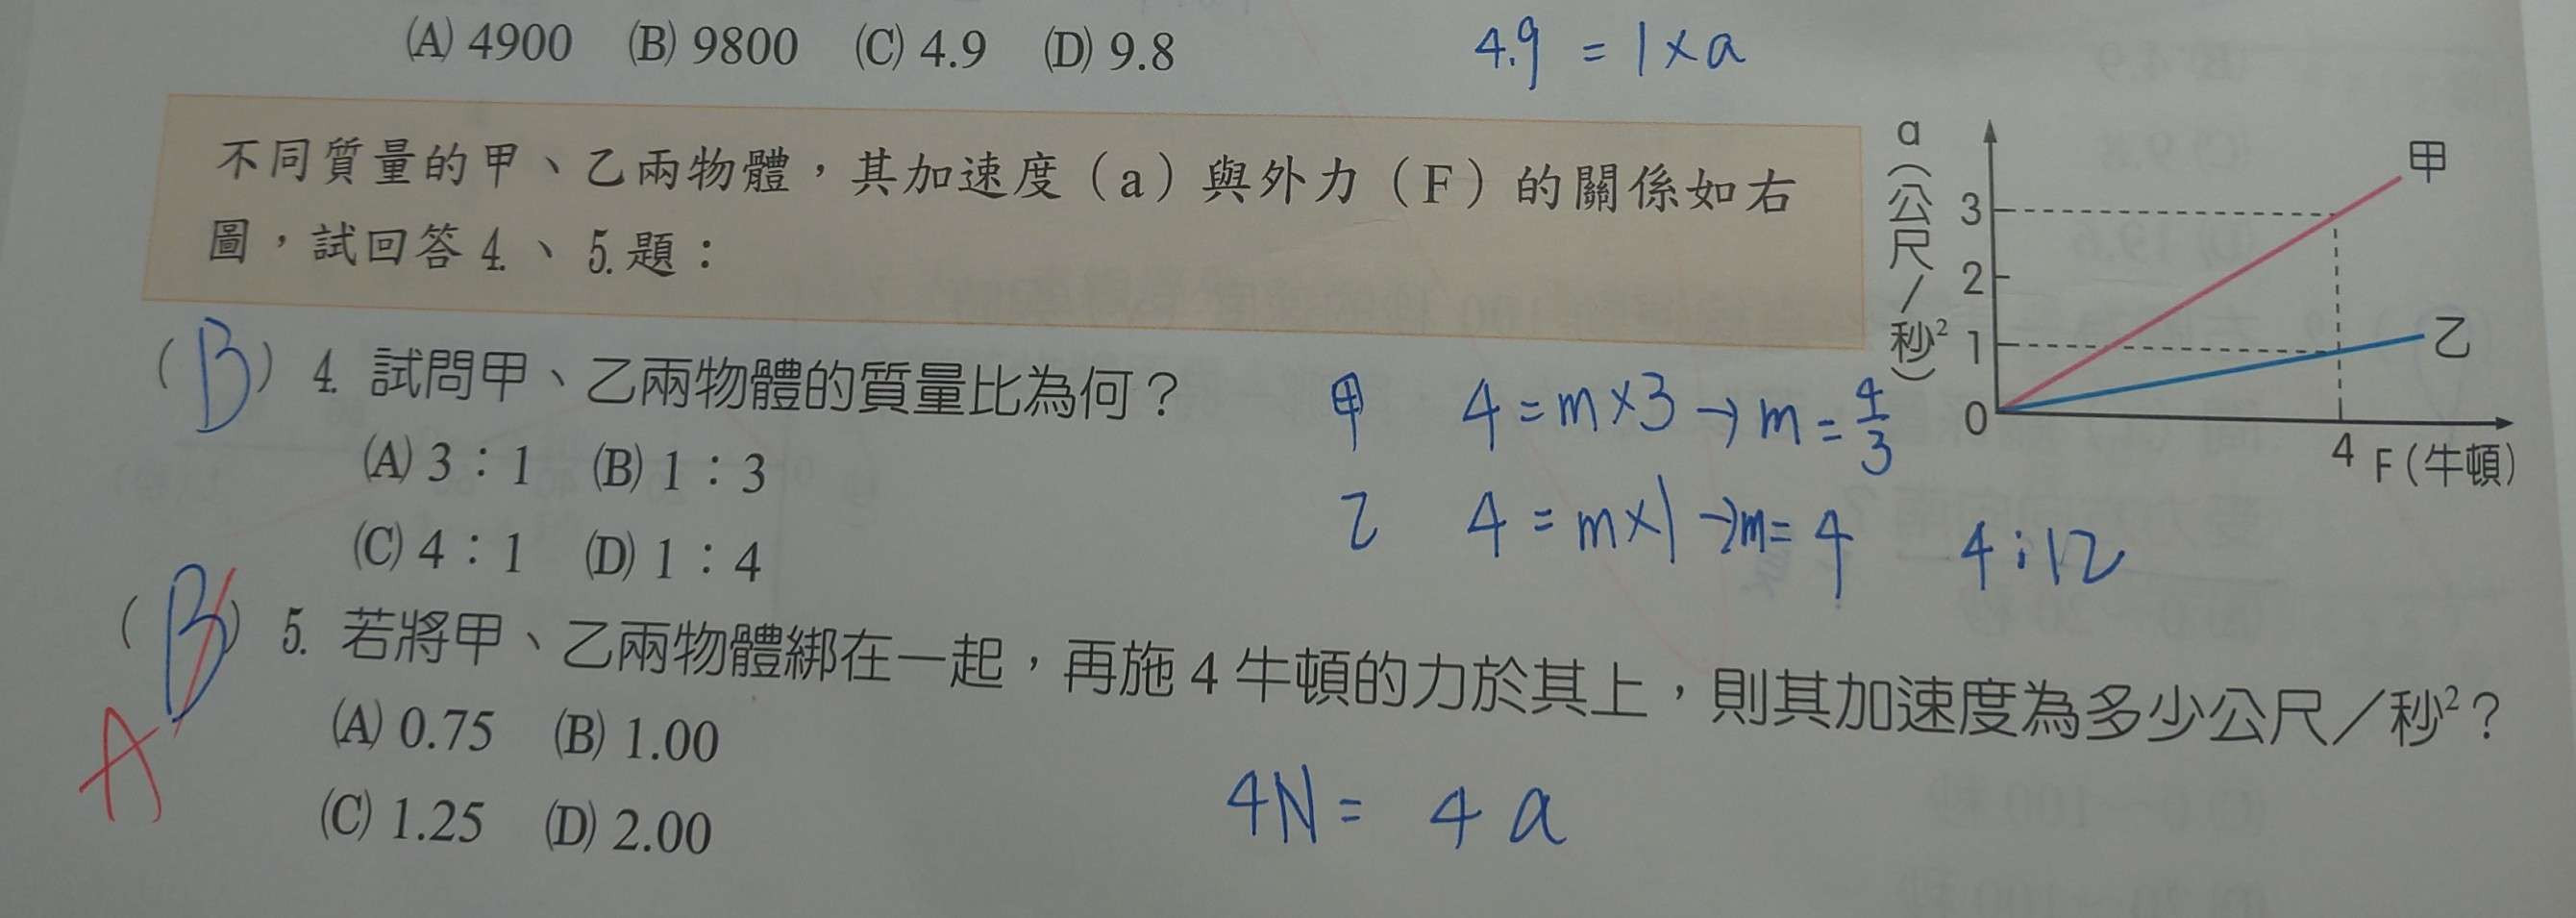 (A) 4900 (B) 9800 (C) 4.9 (D) 9.8
4.9 = 1×a
不同質量的甲、乙兩物體，其加速度（a）與外力（F）的關係如右
圖，試回答4.、5.題：
a（公尺／秒²）
3
2
1
0
4
F（牛頓）
甲
乙
(B) 4. 試問甲、乙兩物體的質量比為何？
(A) 3：1 (B) 1：3
(C) 4：1 (D) 1：4
甲 4=m×3→m=4/3
乙 4=m×1→m=4 4:12
(B) 5. 若將甲、乙兩物體綁在一起，再施4牛頓的力於其上，則其加速度為多少公尺／秒²？
A
(A) 0.75 (B) 1.00
(C) 1.25 (D) 2.00
4N= 4a